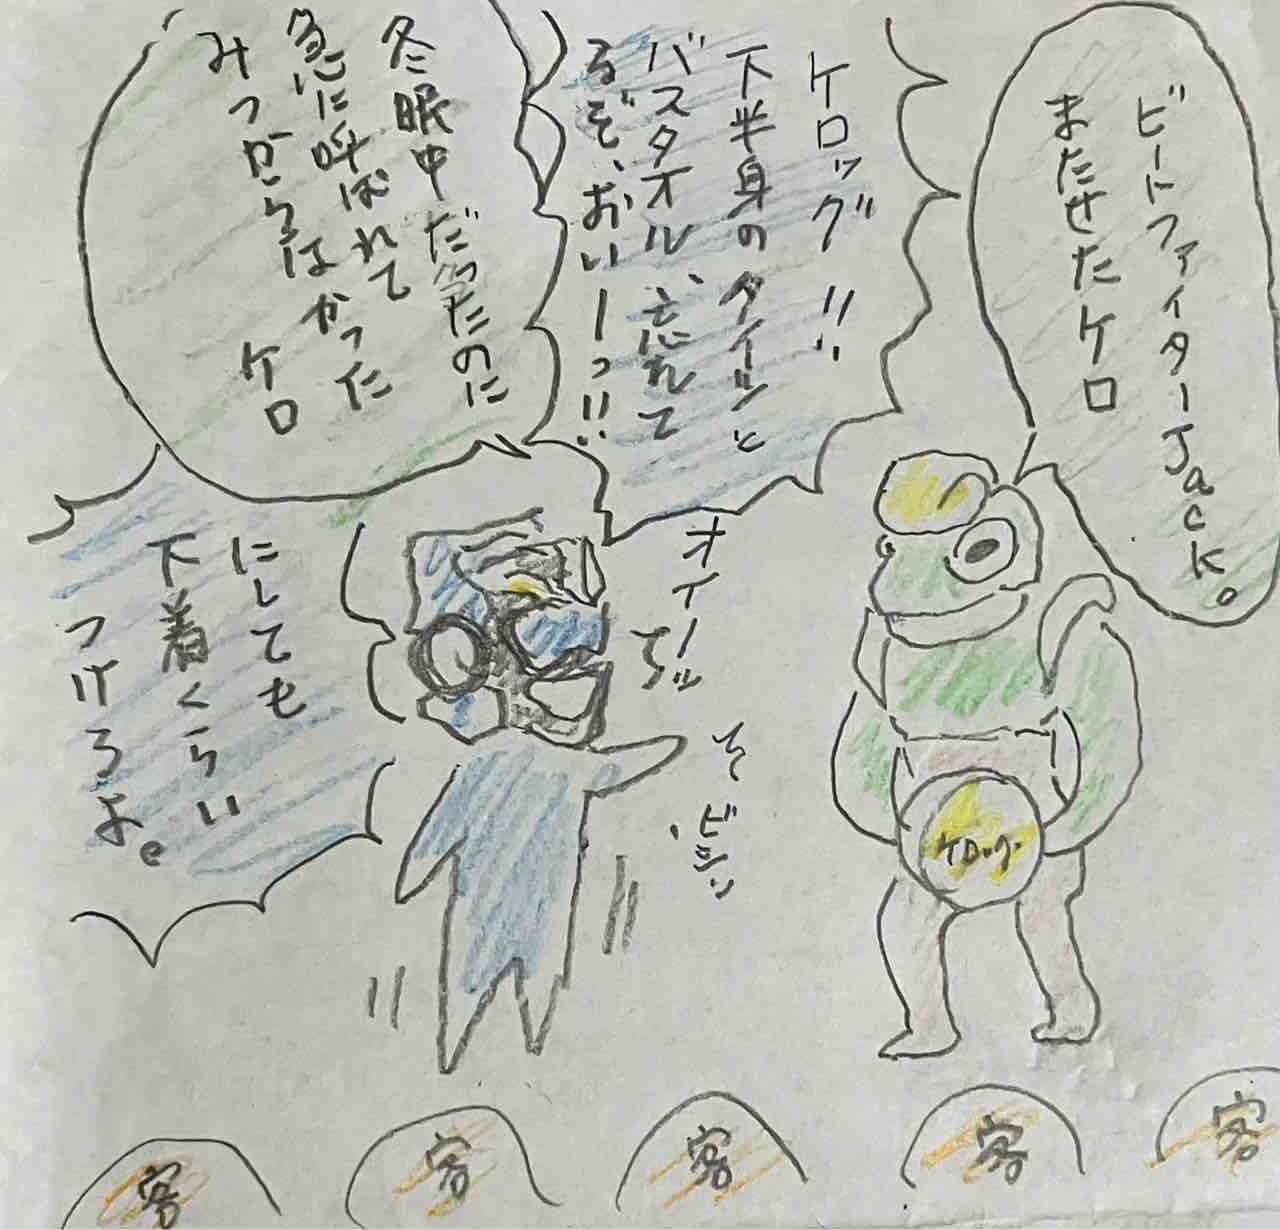 ビートファイターJack。
またせたケロ
ケロッグ!!
下半身のタイツと
バスタオル、忘れて
るぞ、おいーっ!!
冬眠中だったのに
急に呼ばれて
みつからなかった
ケロ
にしても
下着くらい
つけろよ。
オイーッ
ビシッ
ケロッグ
客
客
客
客
客